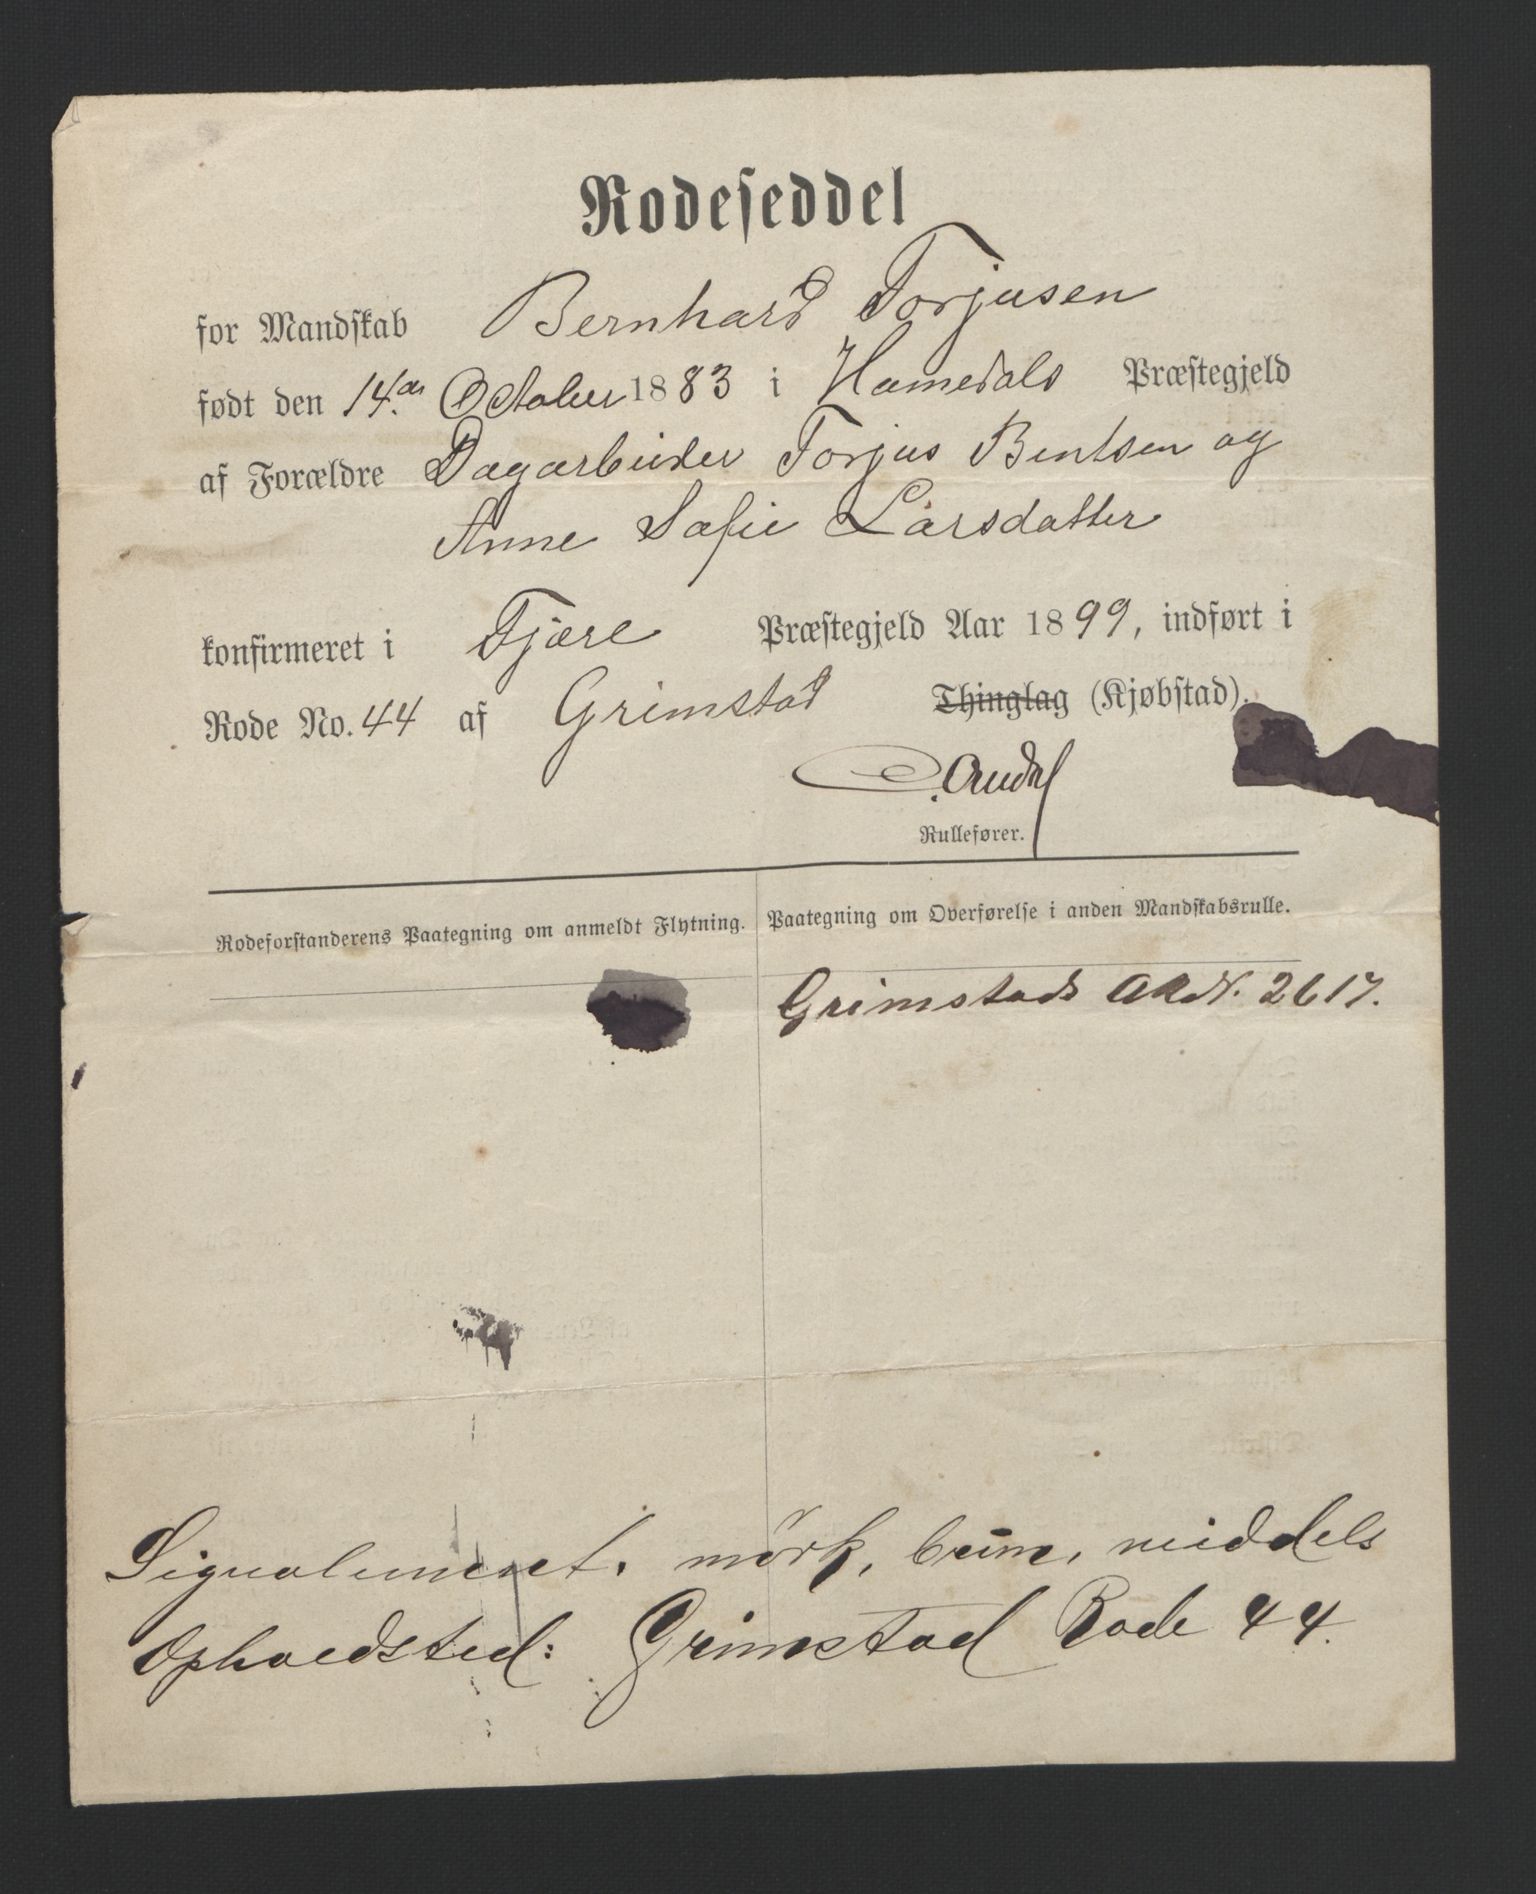 Rodeseddel
for Mandskab Bernhard Torjusen
født den 14de October 1883 i Homedals Præstegjeld
af Forældre Dagarbeider Torjus Bentsen og
Anne Sofie Larsdatter
konfirmeret i Fjære Præstegjeld Aar 1899, indført i
Rode No. 44 af Grimstad Thinglag (Kjøbstad).
Rullefører.
Rodeforstanderens Paategning om anmeldt Flytning.
Paategning om Overførelse i anden Mandskabsrulle.
Grimstads A R N. 2617.
Signalement. mörk, brun, middels
Opholdsted: Grimstad Rode 44.